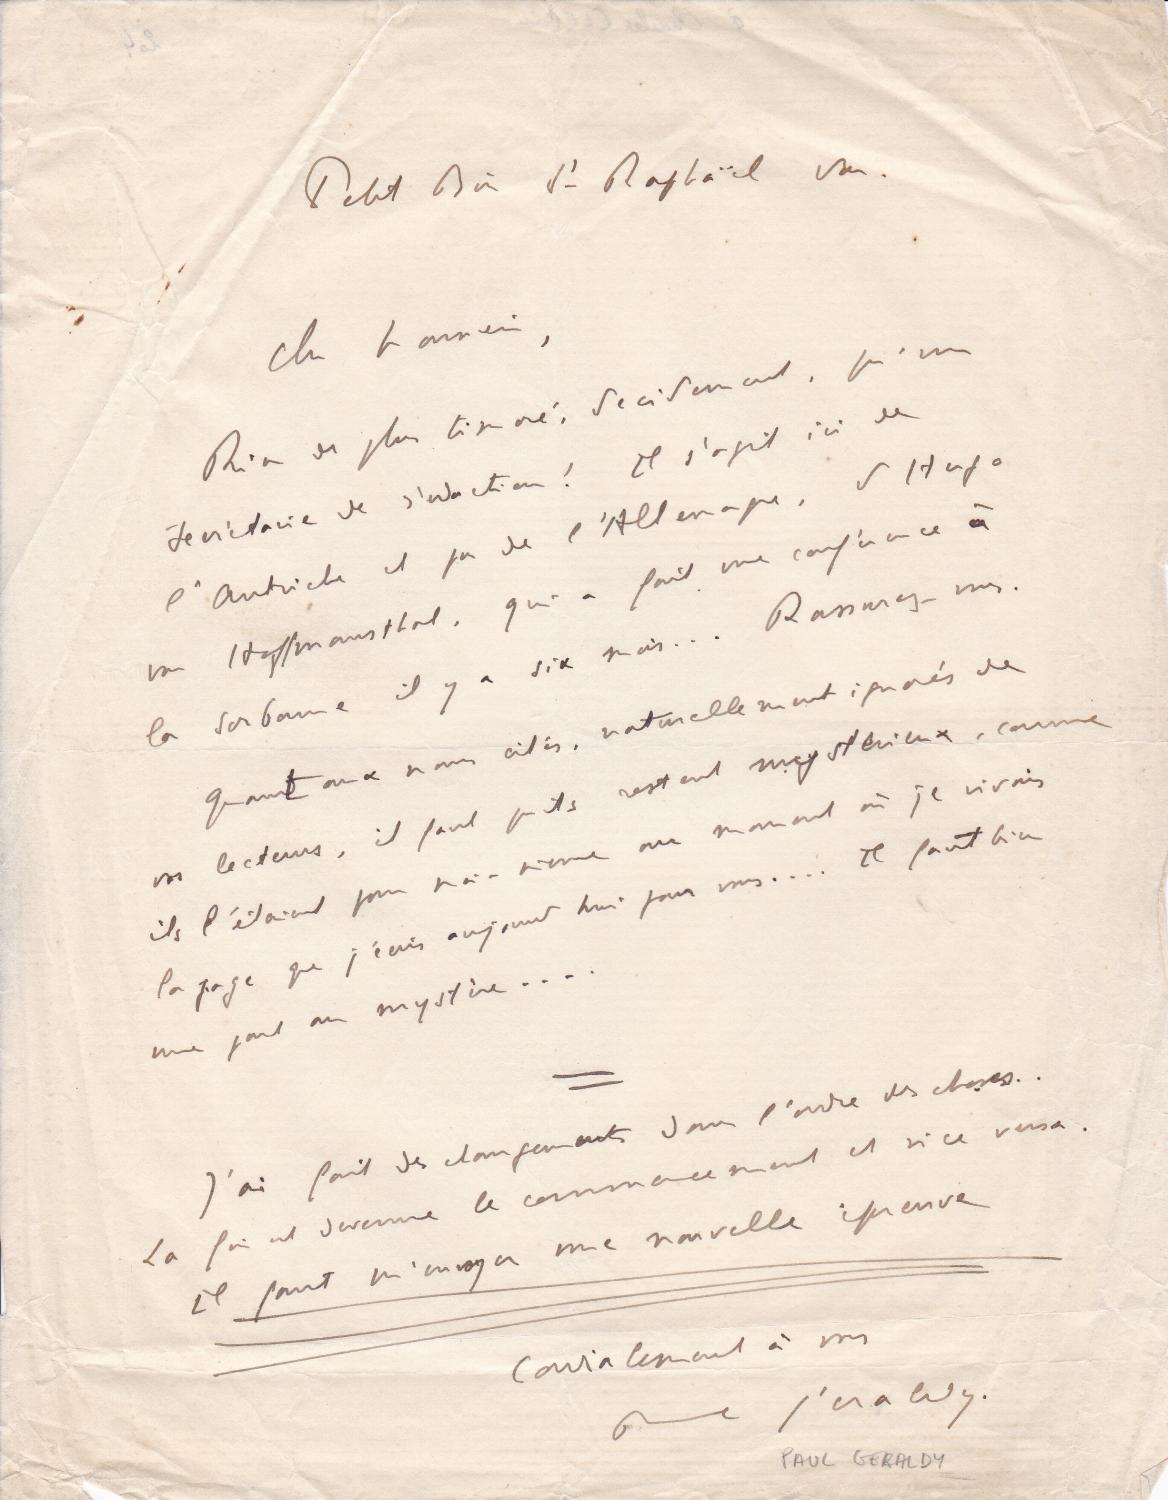 Petit Bois St Raphaël Var.
Cher
Rien de plus timoré, décidement, qu'un
secrétaire de rédaction! Il s'agit ici de
l'Autriche et pas de l'Allemagne, d'Hugo
von Hoffmansthal, qui a fait une conférence à
la Sorbonne il y a six mois... Rassurez-vous.
Quant aux noms cités, naturellement ignorés de
vos lecteurs, il faut qu'ils restent mystérieux, comme
ils l'étaient pour moi-même au moment où je vivais
la page que j'écris aujourd'hui pour vous.... Il faut bien
une part au mystère....
J'ai fait des changements dans l'ordre des choses..
La fin est devenue le commencement et vice versa.
Il faut m'envoyer une nouvelle épreuve
Cordialement à vous
Paul Géraldy.
PAUL GERALDY